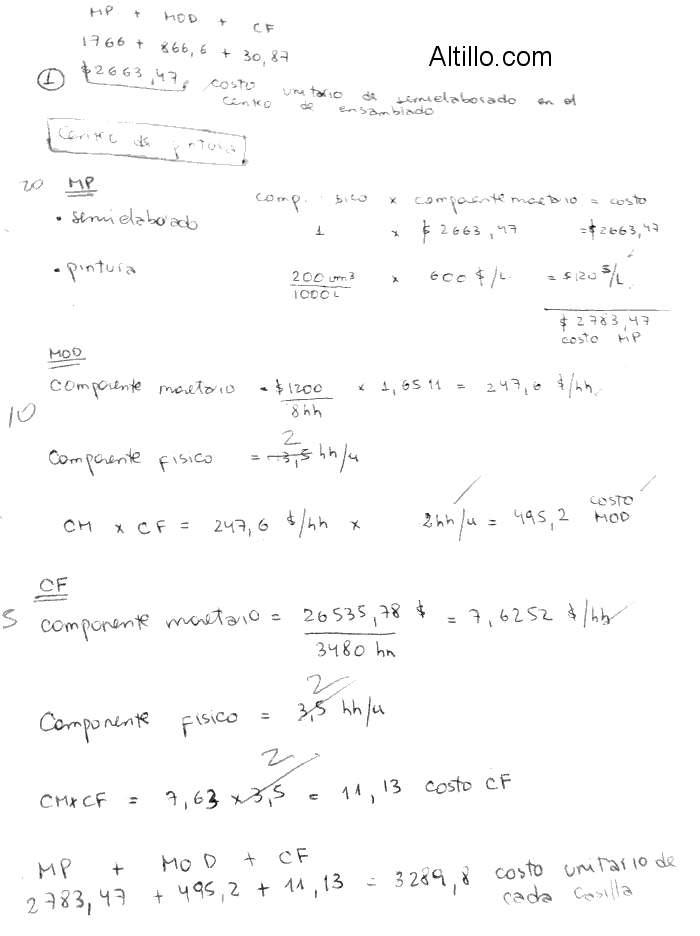 MP + MOD + CF
1766 + 866,6 + 30,87
Altillo.com
$2663,47, costo unitario de semielaborado en el
1
centro de ensamblado
Centro de pintura
20 MP
comp. sico x componente moetario = costo
• semielaborado 1 x $2663,47 =$2663,47
• pintura 200 cm³ / 1000 L x 600 $/L. = $120 $/L
$2783,47
costo MP
MOD
componente moetario = $1200 / 8hh x 1,6511 = 247,6 $/hh
10
2
Componente fisico = 3,5 hh/u
CM x CF = 247,6 $/hh x 2hh/u = 495,2 costo MOD
CF
5 componente moetario = 26535,78 $ / 3480 hh = 7,6252 $/hh
2
Componente fisico = 3,5 hh/u
2
CMxCF = 7,63 x 3,5 = 11,13 costo CF
MP + MOD + CF
2783,47 + 495,2 + 11,13 = 3289,8 costo unitario de
cada casilla